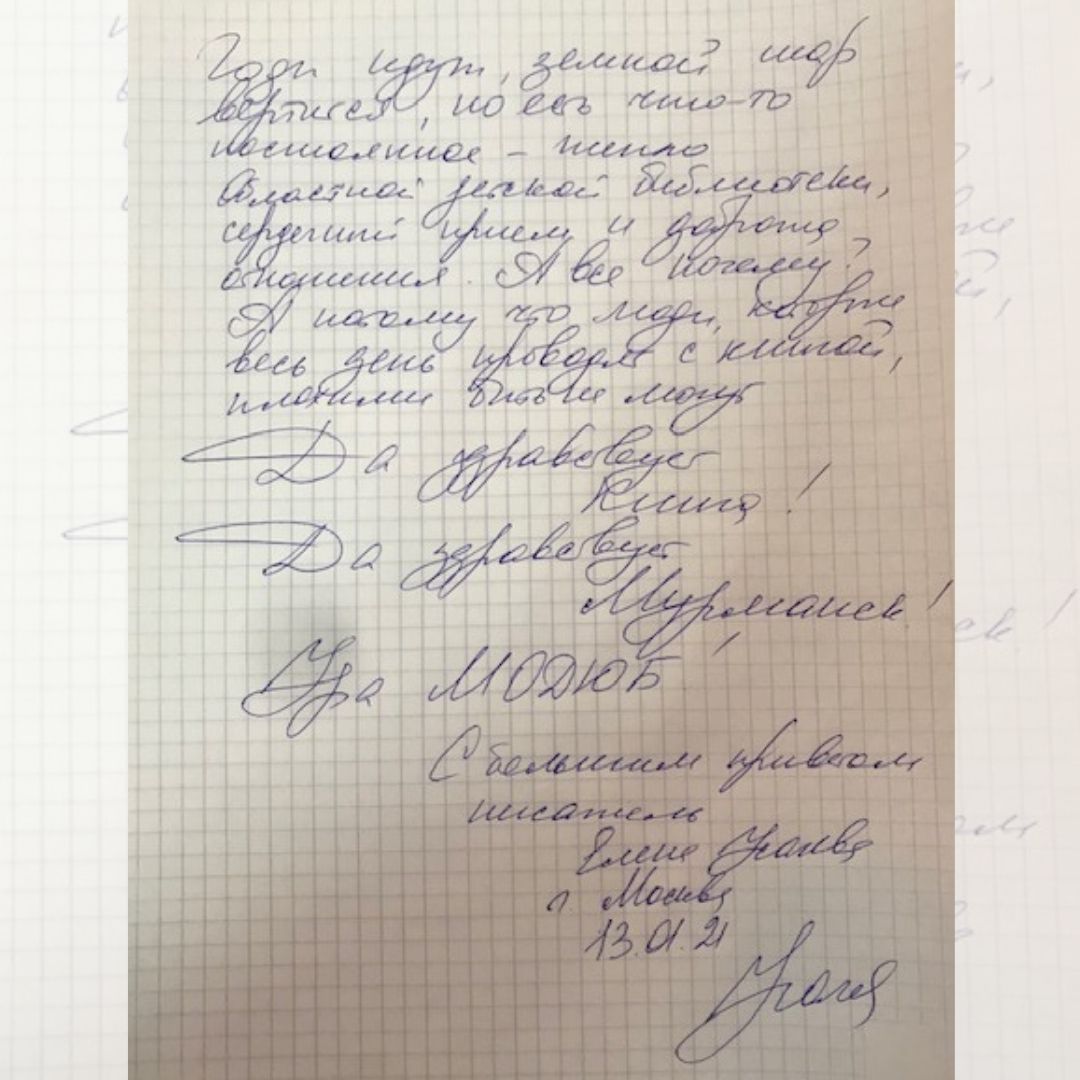 Годы идут, земной шар
вертится, но есть что-то
постоянное – тепло
Областной детской библиотеки,
сердечный прием и доброта
отношения. А все почему?
А потому что люди, которые
весь день проводят с книгой,
плохими быть не могут
Да здравствует
Книга!
Да здравствует
Мурманск!
Ура МОДЮБ!
С большим приветом
писатель
Елена Усачева
г. Москва
13.01.21